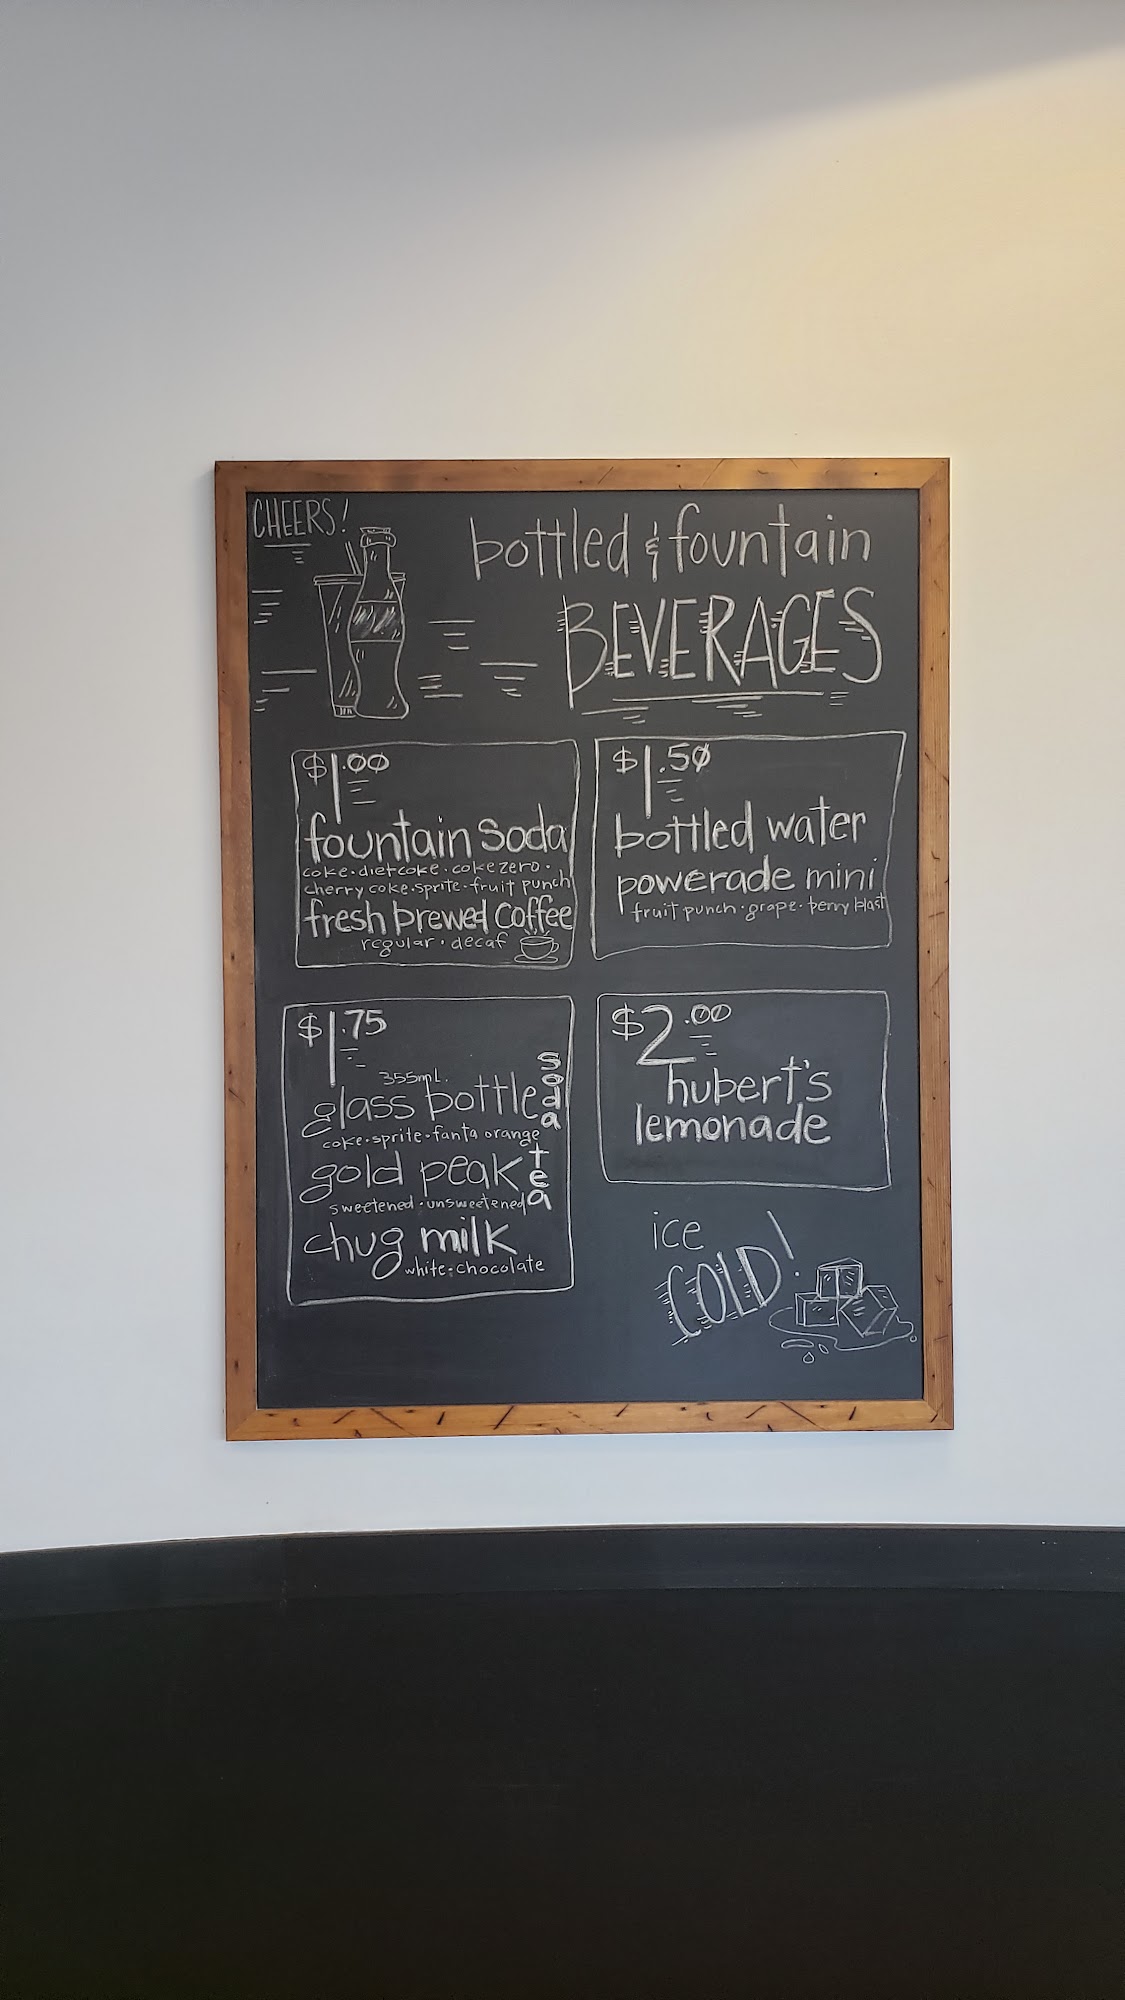 CHEERS!
bottled & fountain
BEVERAGES
$1.00
fountain soda
coke · diet coke · coke zero ·
cherry coke · sprite · fruit punch
fresh brewed coffee
regular · decaf
$1.50
bottled water
powerade mini
fruit punch · grape · berry blast
$1.75
355mL.
glass bottle soda
coke · sprite · fanta orange
gold peak tea
sweetened · unsweetened
chug milk
white · chocolate
$2.00
hubert's
lemonade
ice
COLD!